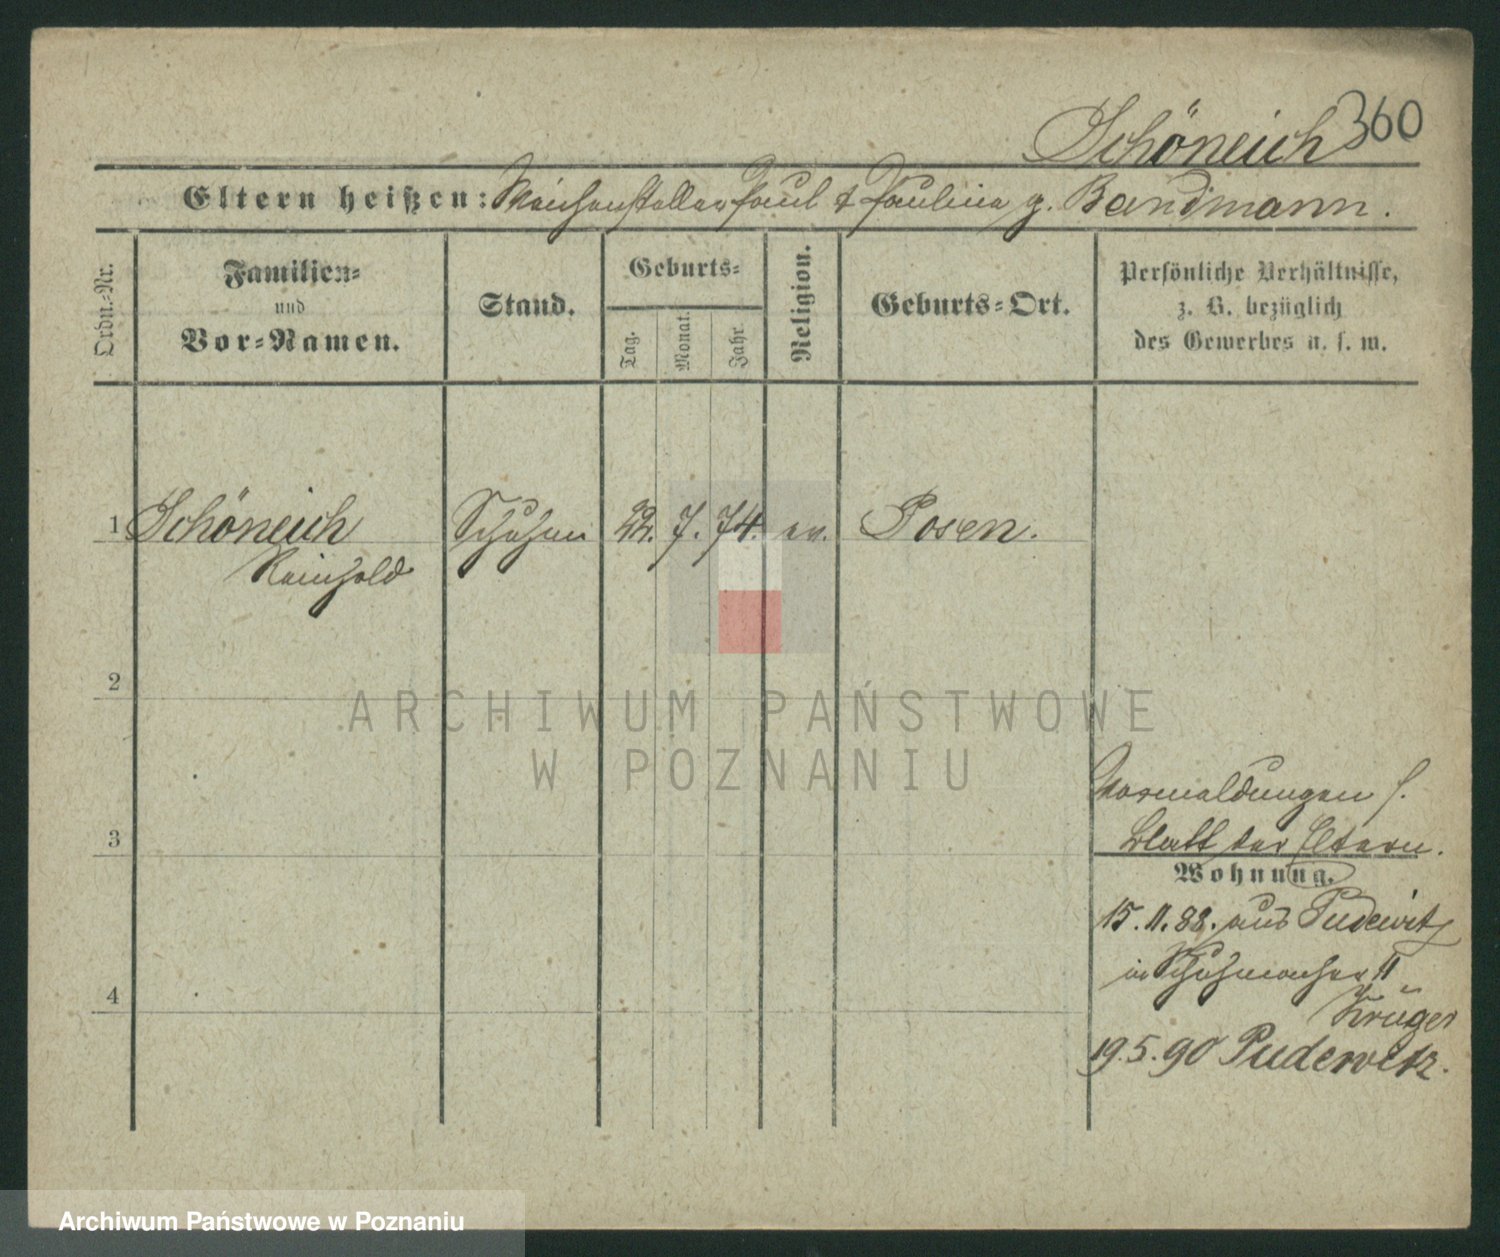 Schöneich 360
Eltern heißen: Weichensteller Paul & Pauline g. Bandmann.
Ordn.-Nr.
Familien-
und
Vor-Namen.
Stand.
Geburts-
Tag.
Monat.
Jahr.
Religion.
Geburts-Ort.
Persönliche Verhältnisse,
z. B. bezüglich
des Gewerbes u. s. w.
1 Schöneich 22. 7. 74. ev. Posen.
Reinhold
2
ARCHIWUM PAŃSTWOWE
W POZNANIU
Vormeldungen s.
3
Blatt der Eltern.
Wohnung.
15.11.88. aus Pudewitz
Schuhmacher
4
Krüger
19.5.90 Pudewitz.
Archiwum Państwowe w Poznaniu